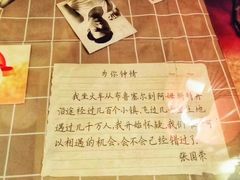 为你钟情
我坐火车从布鲁塞尔到阿姆斯特丹
沿途经过几百个小镇,飞过几千里土地
遇过几千万人,我开始怀疑,我们
以相遇的机会,会不会已经错过了
张国荣